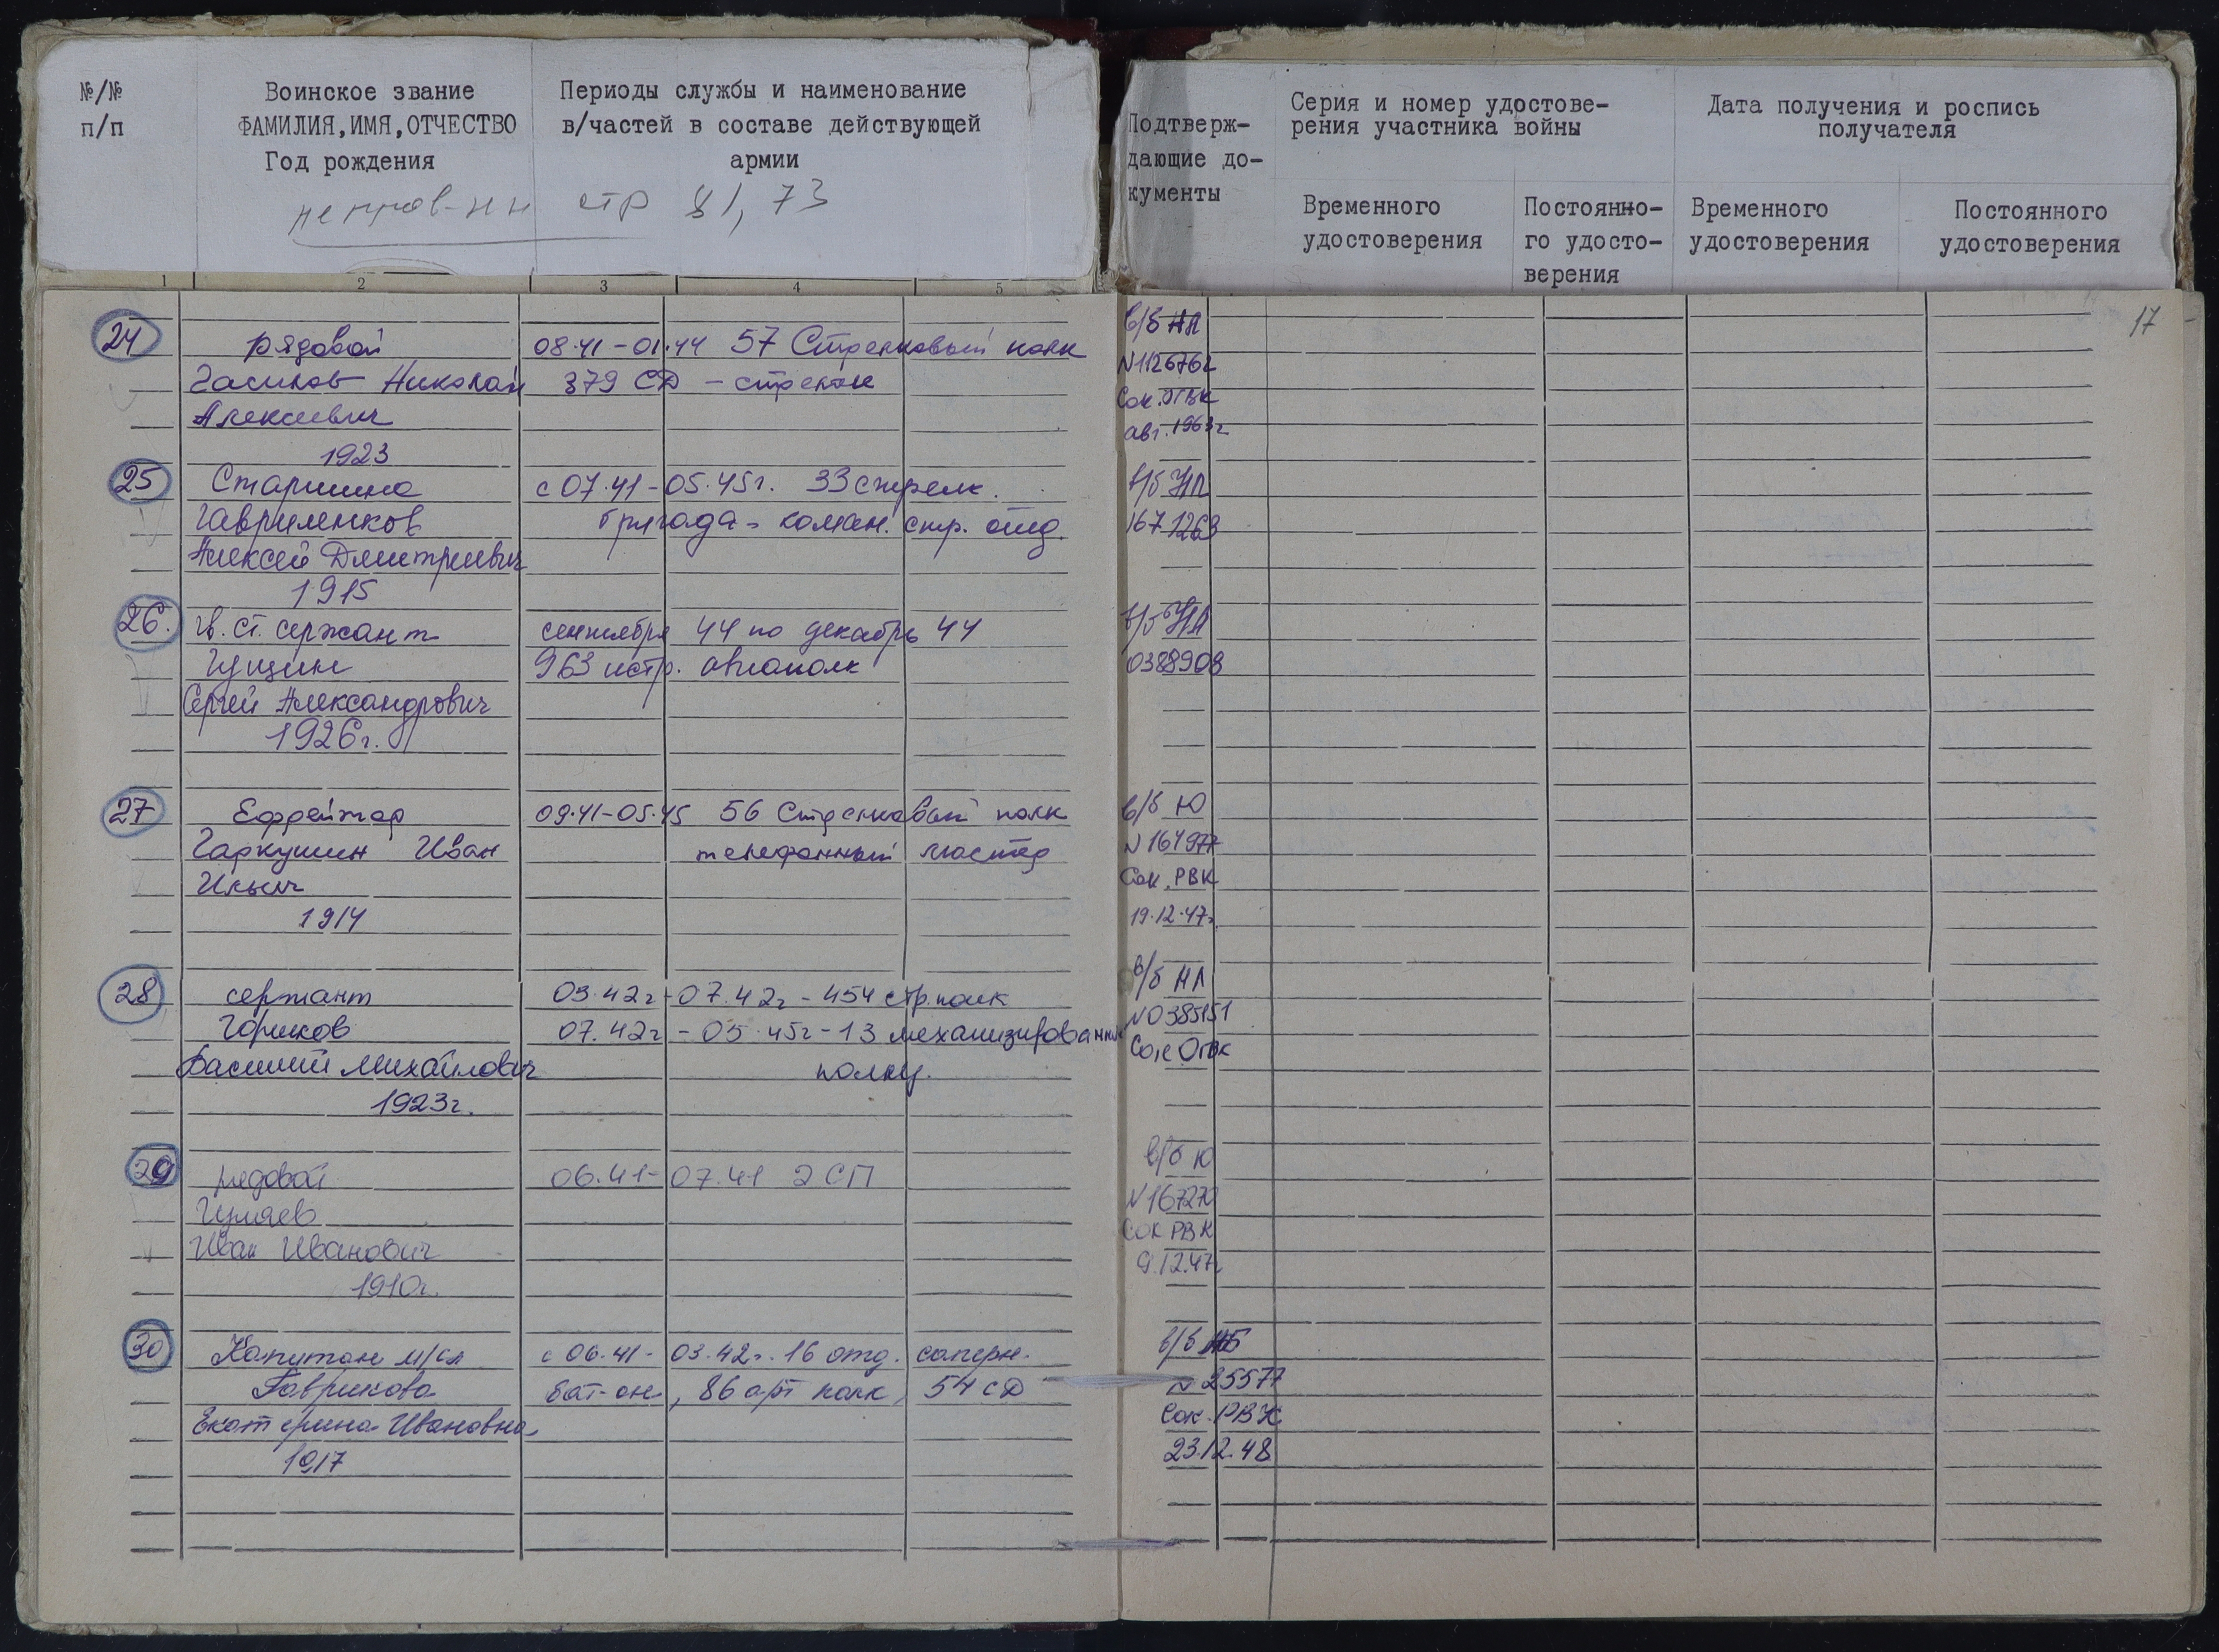 №/№
п/п
Воинское звание
ФАМИЛИЯ,ИМЯ,ОТЧЕСТВО
Год рождения
Периоды службы и наименование
в/частей в составе действующей
армии
стр 81, 73
Подтверж-
дающие до-
кументы
Серия и номер удостове-
рения участника войны
Временного
удостоверения
Постоянно-
го удосто-
верения
Дата получения и роспись
получателя
Временного
удостоверения
Постоянного
удостоверения
1 2 3 4 5
17
24 рядовой 08.41-01.44 57 Стрелковый полк
Гасилов Николай 379 СД - стрелок
Алексеевич
1923
в/б НЛ
N1126762
Сок.ОГВК
авг.1963г
25 Старшина с 07.41-05.45г. 33 стрелк.
Гавриленков бригада - коман. стр. отд.
Алексей Дмитриевич
1915
в/б НЛ
1671263
26. гв. ст. сержант сентября 44 по декабрь 44
Гущин 963 истр. авиаполк
Сергей Александрович
1926г.
в/б НЛ
0388908
27 Ефрейтор 09.41-05.45 56 Стрелковый полк
Гаркушин Иван телефонный мастер
Ильич
1914
в/б Ю
N164977
Сок.РВК
19.12.47г.
28 сержант 03.42г-07.42г-454 стр.полк
Горшков 07.42г-05.45г-13 механизирован
Василий Михайлович полку.
1923г.
в/б НЛ
N0385151
Сок ОГВК
29 рядовой 06.41-07.41 2 СП
Гуляев
Иван Иванович
1910г.
в/б Ю
N167270
Сок РВК
9.12.47г
30 Капитан м/сл с 06.41-03.42г. 16 отд. саперн.
Гаврикова бат-он, 86 арт полк, 54 сД
Екатерина Ивановна
1917
в/б
N 25577
Сок.РВК
23.12.48